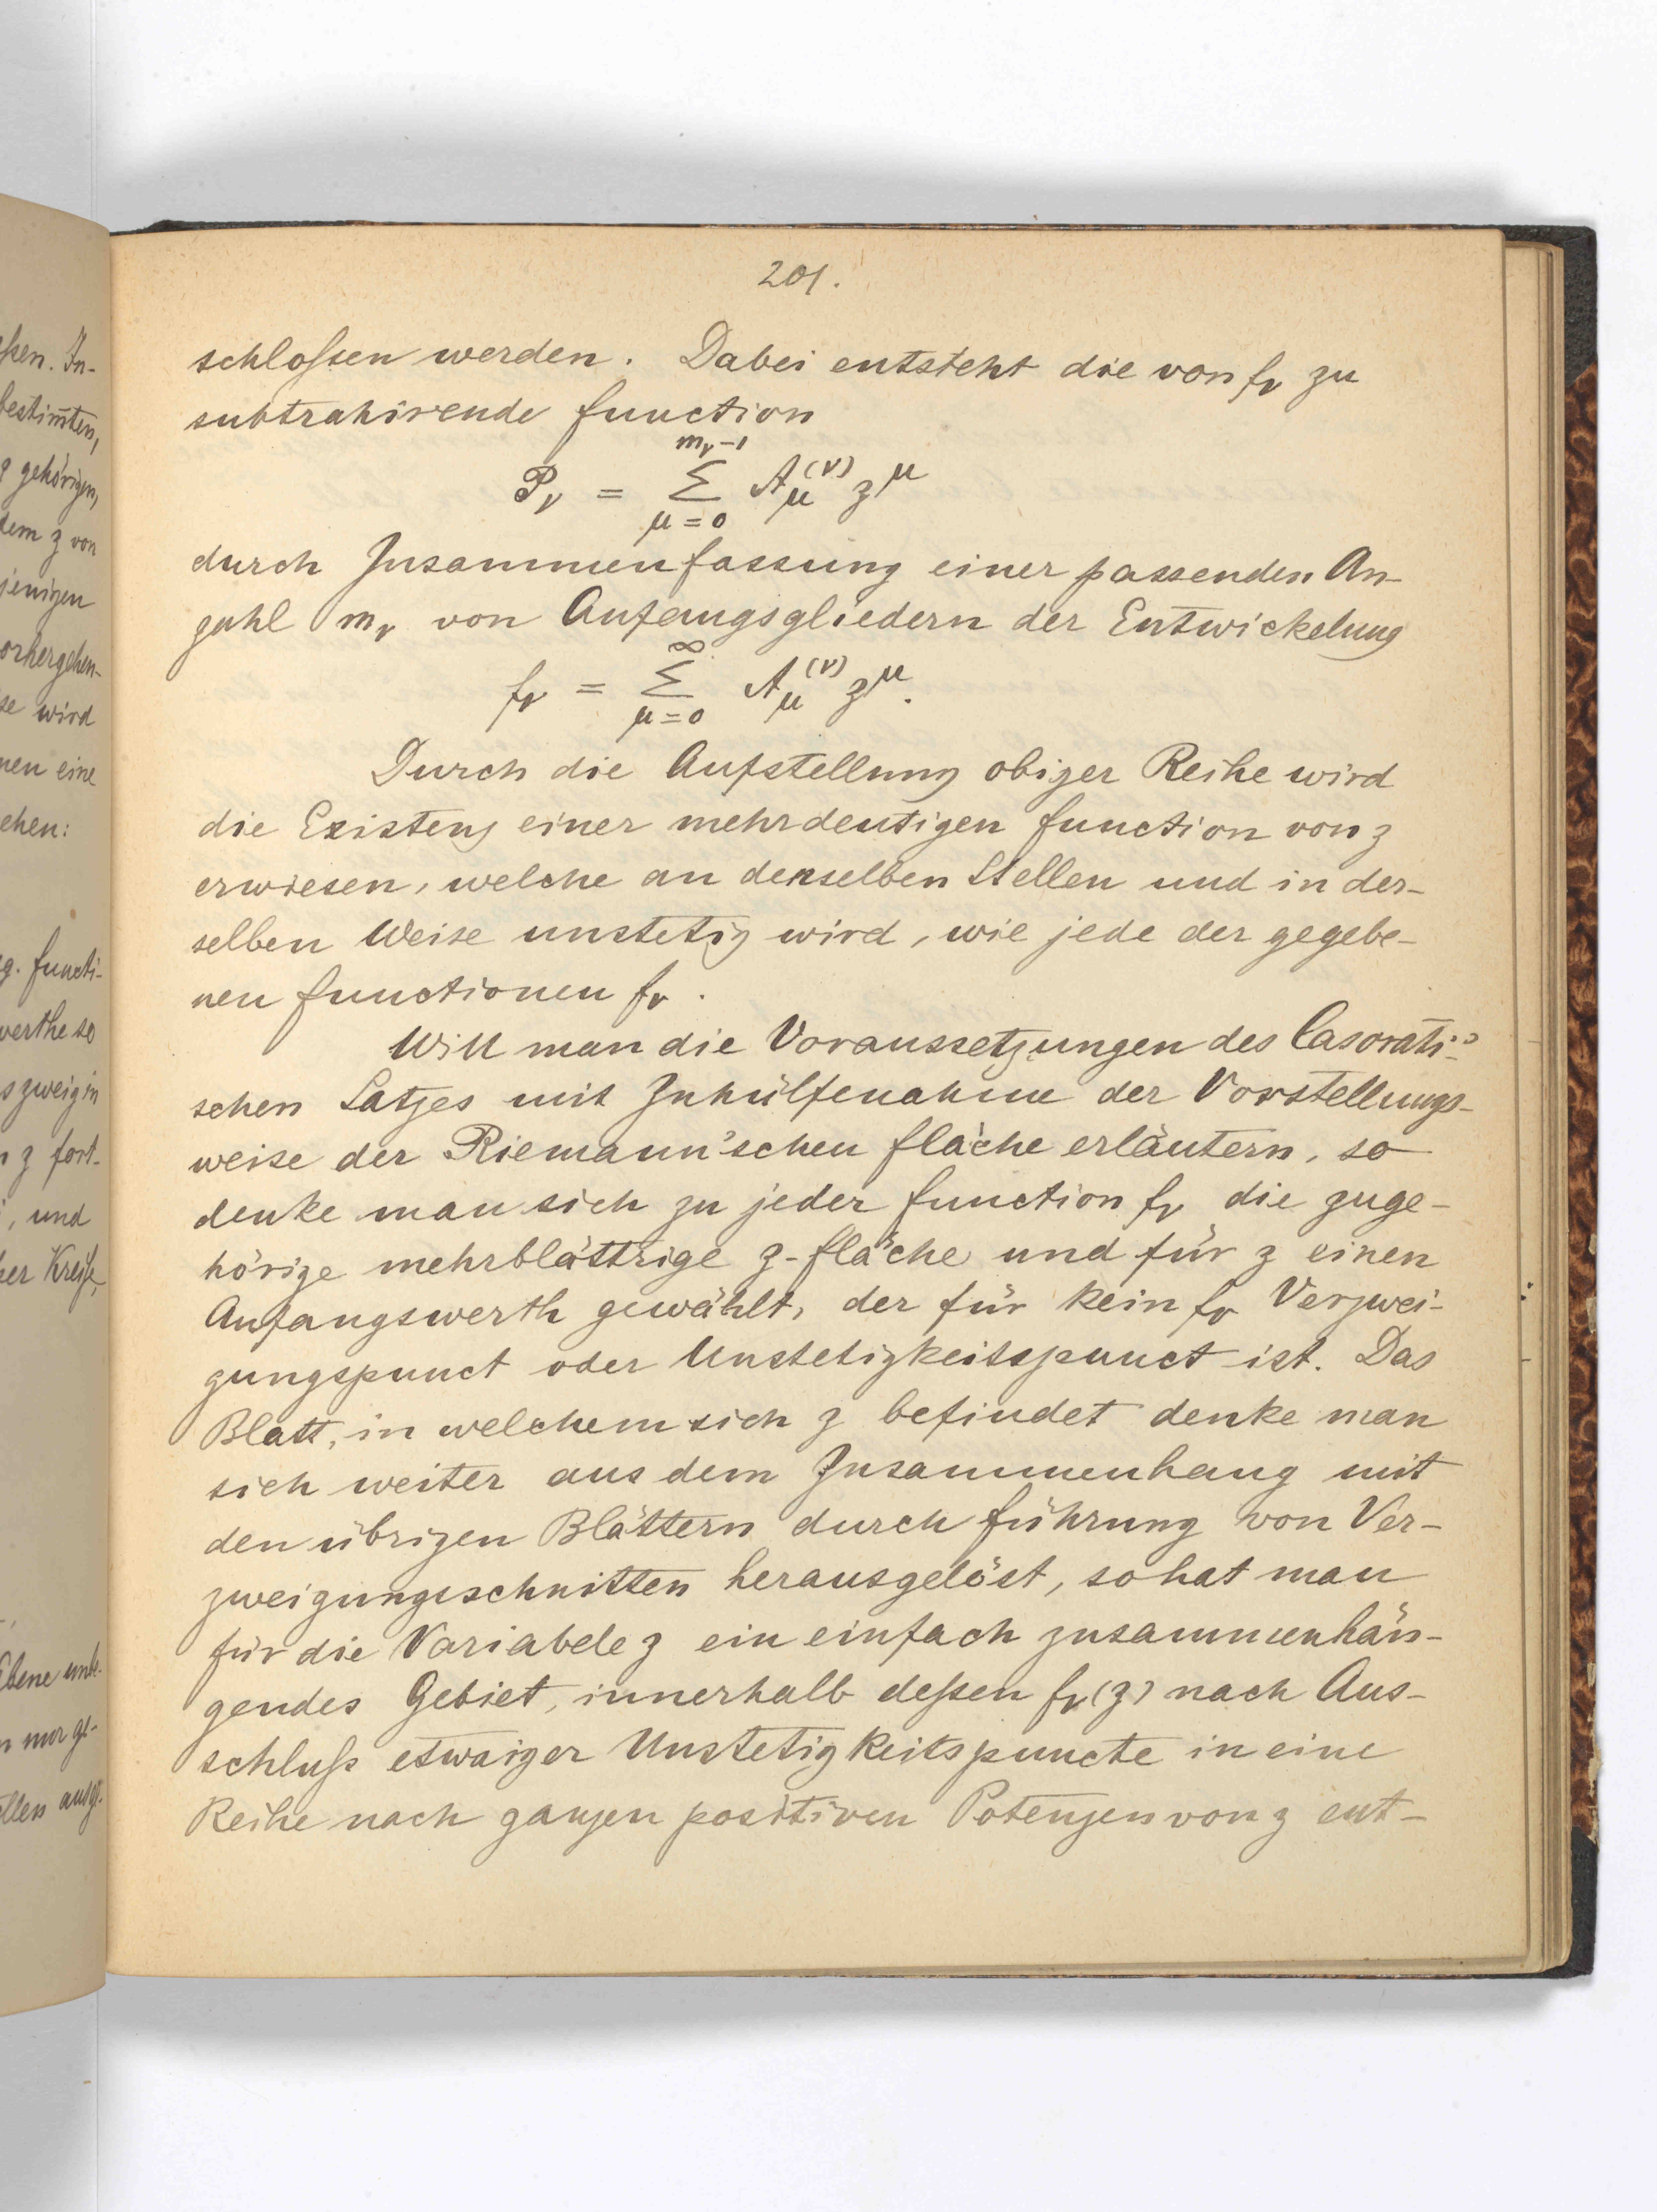 ßen. In-
bestim̄ten,
gehörigen,
dem z von
jenigen
orhergehen-
se wird
nen eine
ehen:
g. functi-
werthe so
szweig in
z fort-
, und
Kreiſe,
Ebene unbe-
nur ge-
llen ausg.
201.
schloſsen werden. Dabei entsteht die von f_ν zu
subtrahirende function
P_ν = Σ_{μ=0}^{m_ν-1} A_μ^{(ν)} z^μ
durch Zusammenfassung einer passenden An-
zahl m_ν von Anfangsgliedern der Entwickelung
f_ν = Σ_{μ=0}^{∞} A_μ^{(ν)} z^μ.
Durch die Aufstellung obiger Reihe wird
die Existenz einer mehrdeutigen function von z
erwiesen, welche an denselben Stellen und in der-
selben Weise unstetig wird, wie jede der gegebe-
nen functionen f_ν.
Will man die Voraussetzungen des Casorati'-
schen Satzes mit Zuhülfenahme der Vorstellungs-
weise der Riemann'schen fläche erläutern, so
denke man sich zu jeder function f_ν die zuge-
hörige mehrblättrige z-fläche und für z einen
Anfangswerth gewählt, der für kein f_ν Verzwei-
gungspunct oder Unstetigkeitspunct ist. Das
Blatt, in welchem sich z befindet denke man
sich weiter aus dem Zusammenhang mit
den übrigen Blättern durch führung von Ver-
zweigungsschnitten herausgelöst, so hat man
für die Variabele z ein einfach zusammenhän-
gendes Gebiet, innerhalb deſsen f_ν(z) nach Aus-
schluſs etwaiger Unstetigkeitspuncte in eine
Reihe nach ganzen positiven Potenzen von z ent-